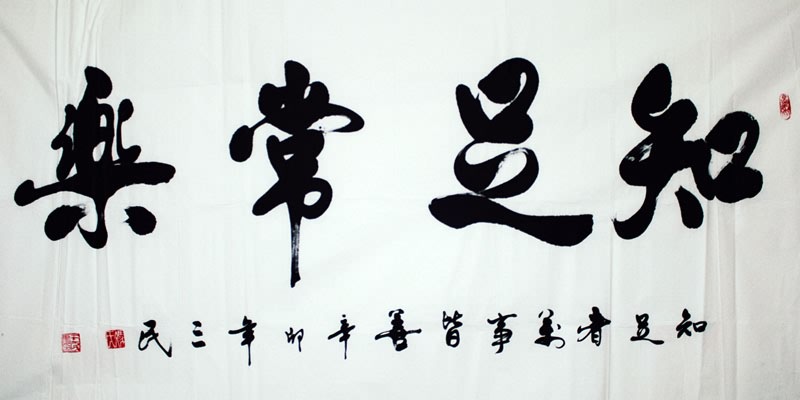 知足常樂
知足者萬事皆善辛卯年三民